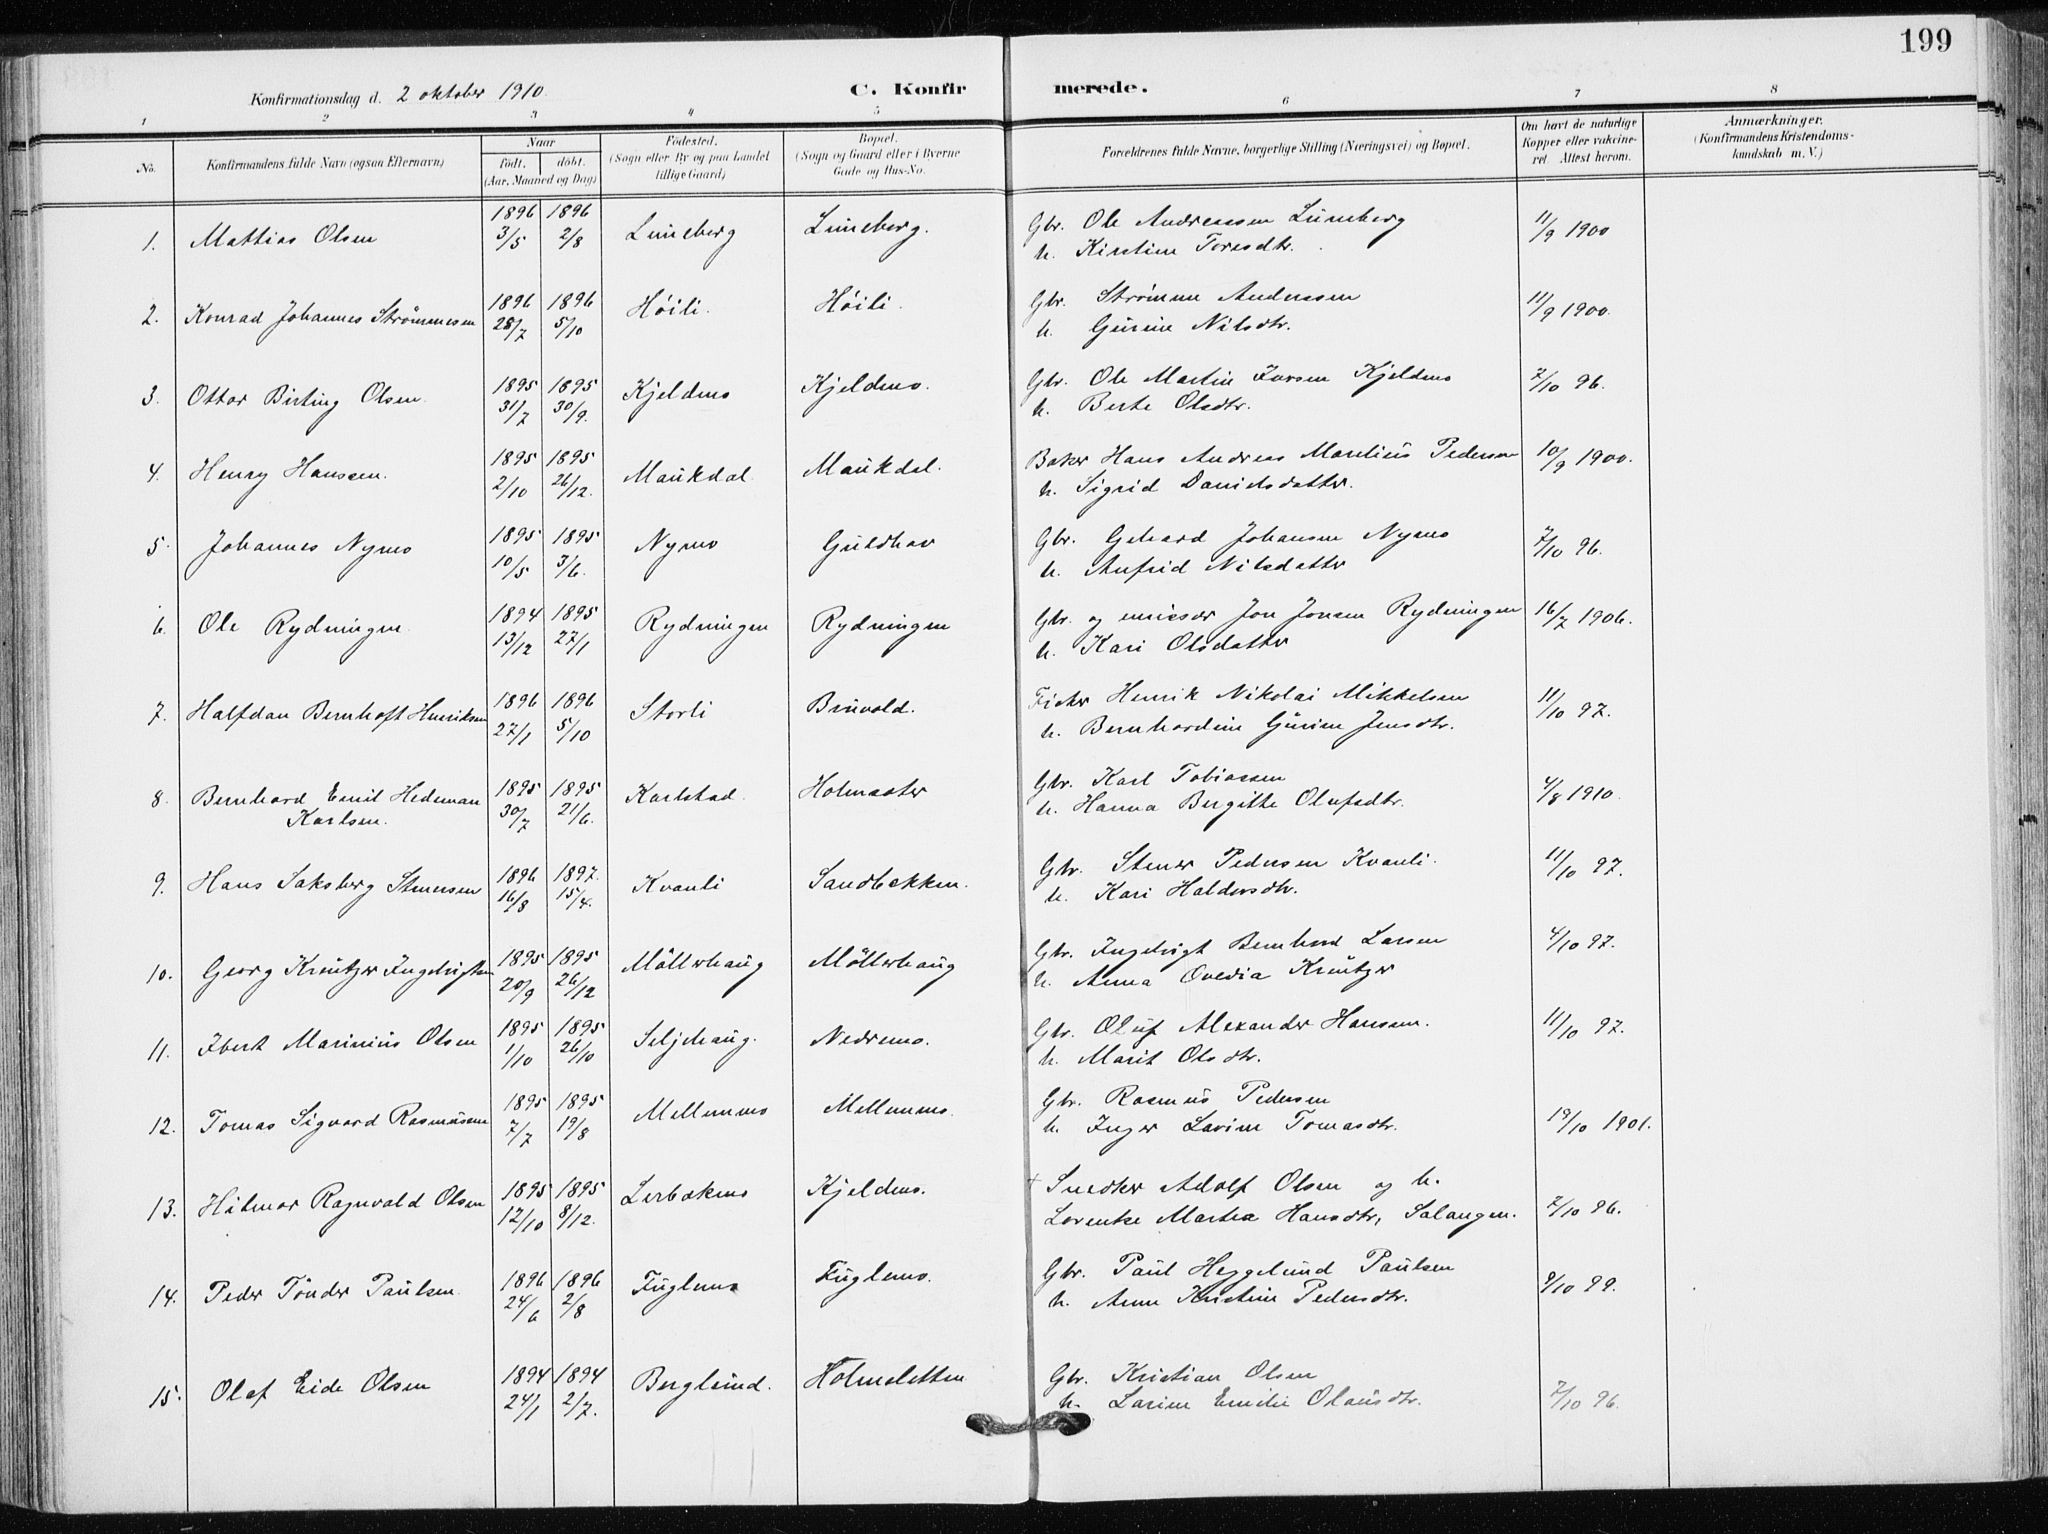 199
Konfirmationsdag d. 2 oktober 1910.
C. Konfirmerede.
1 2 3 4 5 6 7 8
No.
Konfirmandens fulde Navn (ogsaa Efternavn)
Naar
født. døbt.
(Aar, Maaned og Dag)
Fødested.
(Sogn eller By og paa Landet
tillige Gaard)
Bopæl.
(Sogn og Gaard eller i Byerne
Gade og Hus-No.
Forældrenes fulde Navne, borgerlige Stilling (Næringsvei) og Bopæl.
Om havt de naturlige
Kopper eller vakcine-
ret. Attest herom.
Anmærkninger.
(Konfirmandens Kristendoms-
kundskab m. V.)
1. Mattias Olsen 1896 3/5 1896 2/8 Luneborg Luneborg. Gbr. Ole Andreassen Luneborg 11/9 1900
h. Kirstine Toresdtr.
2. Konrad Johannes Strømmesen 1896 28/7 1896 5/10 Høili. Høili. Gbr. Strømme Anderssen 11/9 1900.
h. Gurine Nilsdtr.
3. Ottar Birting Olsen. 1895 31/7 1895 30/9. Kjeldmo Kjeldmo. Gbr. Ole Martin Iversen Kjeldmo 7/10 96.
h. Berte Olsdtr.
4. Henry Hanssen. 1895 2/10 1895 26/12. Maukdal. Maukdal. Baker Hans Andreas Marelius Pedersen 10/9 1900.
h. Sigrid Danielsdatter.
5. Johannes Nymo 1895 10/5 1895 3/6. Nymo Guldhav Gbr. Gerhard Johansen Nymo 7/10 96.
h. Anfrid Nilsdatter
6. Ole Rydningen 1894 13/12 1895 27/1 Rydningen Rydningen Gbr. og Jon Jonsen Rydningen 16/7 1906.
h. Kari Olsdatter
7. Halfdan Bernhoft Henriksen 1896 27/1 1896 5/10 Storli Bruvold. Fisker Henrik Nikolai Mikkelsen 11/10 97.
h. Bernhardine Gurine Jensdtr.
8. Bernhard Emil Hedeman 1895 30/7 1895 21/6. Karlstad. Holmsater Gbr. Karl Tobiassen 4/8 1910.
Karlsen. h. Hanna Bergitte Olufsdtr.
9. Hans Saksberg Stenersen 1896 16/8 1897. 15/4. Kvanli Sandbekken. Gbr. Stener Pedersen Kvanli. 11/10 97.
h. Kari Haldorsdtr.
10. Georg Kreutzer Ingebrigtsen 1895 20/9 1895 26/12 Møllerhaug Møllerhaug Gbr. Ingebrigt Bernhard Larsen 4/10 97.
h. Anna Ovedia Kreutzer
11. Ibert Marinius Olsen 1895 1/10 1895 26/10 Seljehaug. Nedremo. Gbr. Oluf Alexander Hanssen. 11/10 97.
h. Marit Olsdtr.
12. Tomas Sigvard Rasmussen 1895 7/7 1895 19/8 Mellemmo Mellemmo. Gbr. Rasmus Pedersen
h. Inger Lavine Tomasdtr. 19/10 1901.
13. Hilmar Ragnvald Olsen 1895 12/10 1895 8/12. Lerbakmo Kjeldmo. + Snedker Adolf Olsen og h.
Lorentse Martea Hansdtr, Salangen. 7/10 96.
14. Peder Tønder Paulsen. 1896 24/6 1896 2/8 Fuglemo Fuglemo. Gbr. Paul Heggelund Paulsen 9/10 99.
h. Anne Kristine Pedersdtr.
15. Olaf Eide Olsen 1894 24/1 1894 2/7. Berglund. Holmsletten Gbr. Kristian Olsen
h. Larine Emelie Olausdtr. 7/10 96.